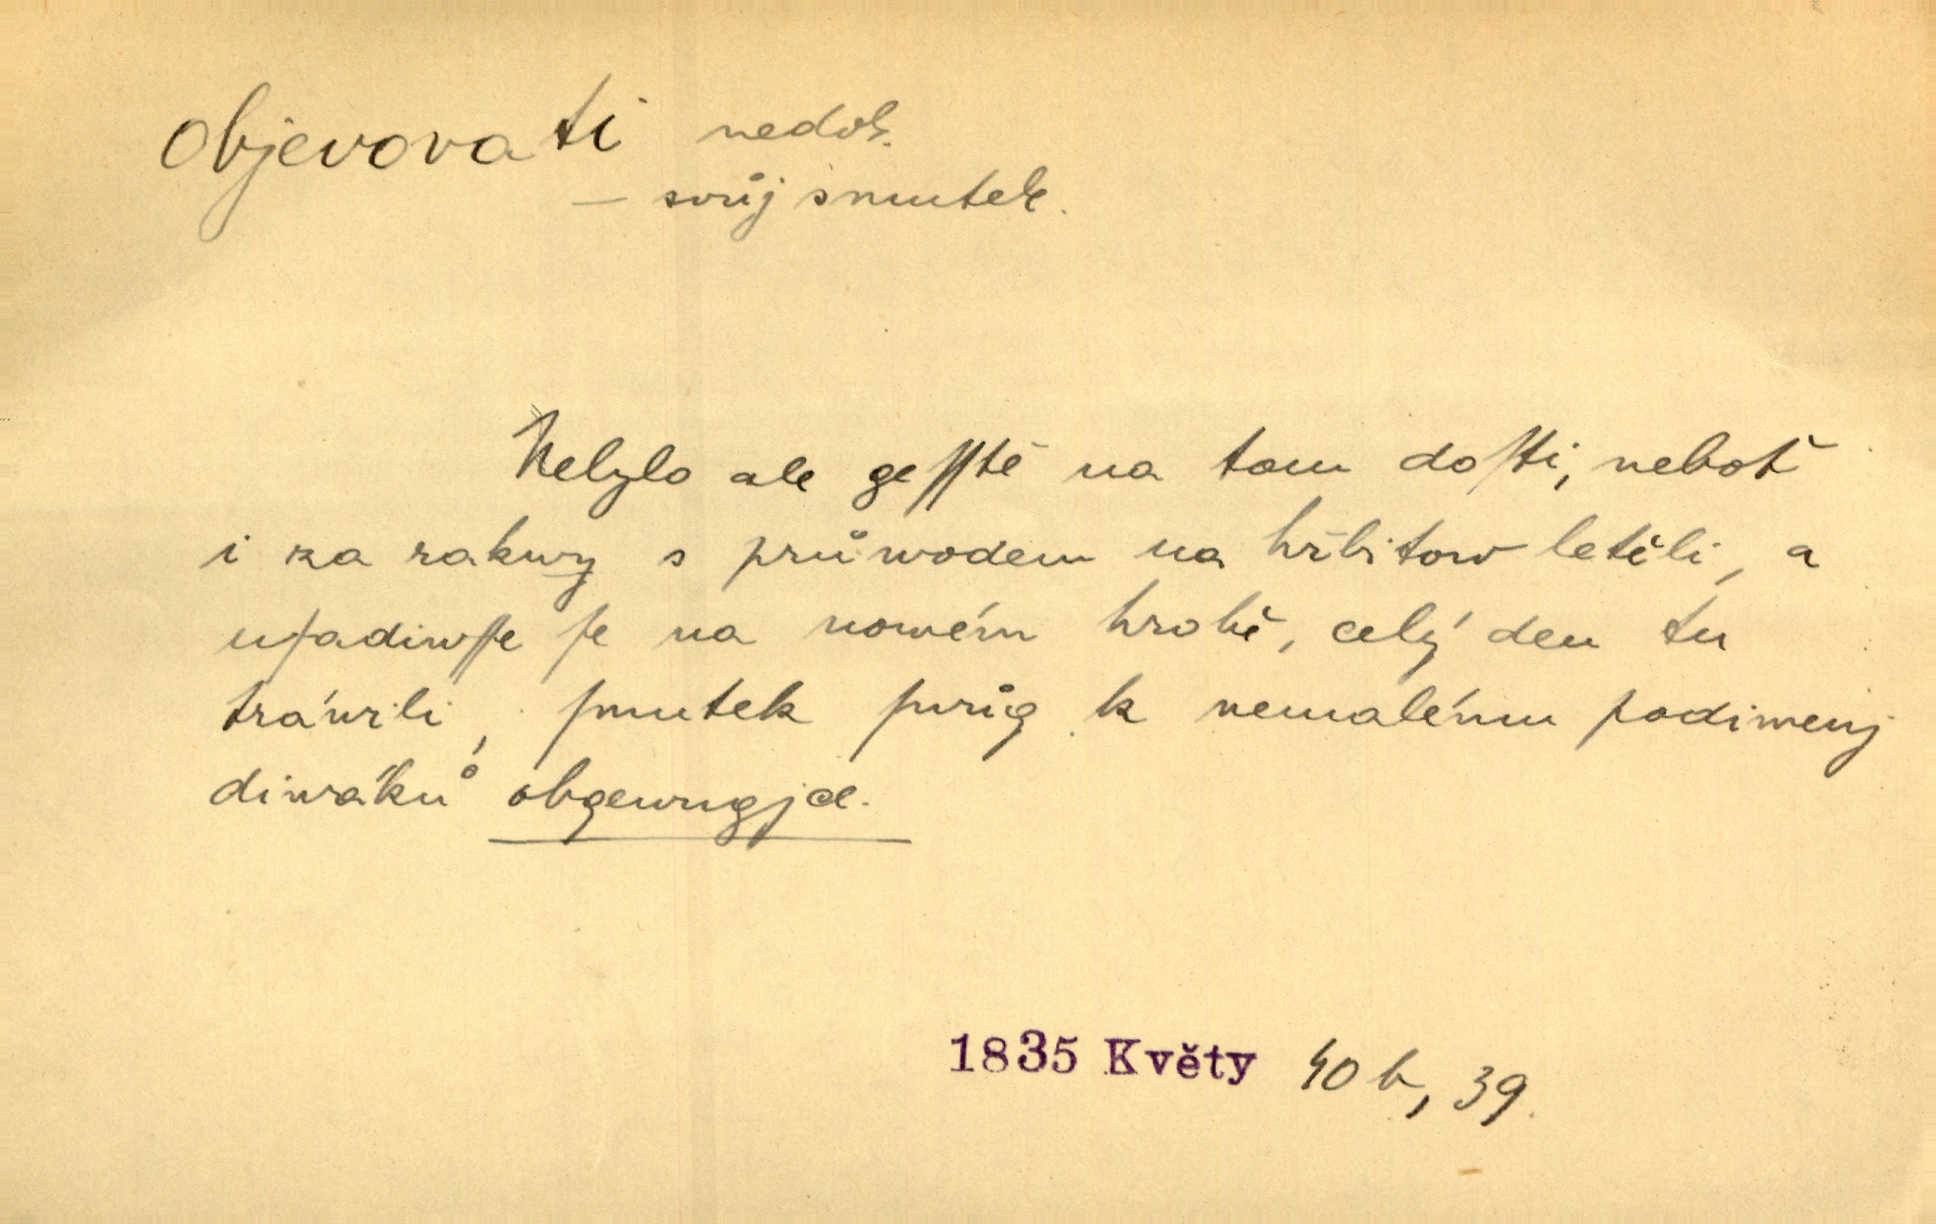 objevovati nedok.
— svůj smutek.
Nebylo ale geſſtě na tom doſti, neboť
i za rakwy s průwodem na hřbitow letěli, a
uſadiwſſe ſe na nowém hrobě, celý den tu
tráwili, ſmutek ſwůg k nemalému podiwenj
diwáků obgewugjce.
1835 Květy 40 b, 39.